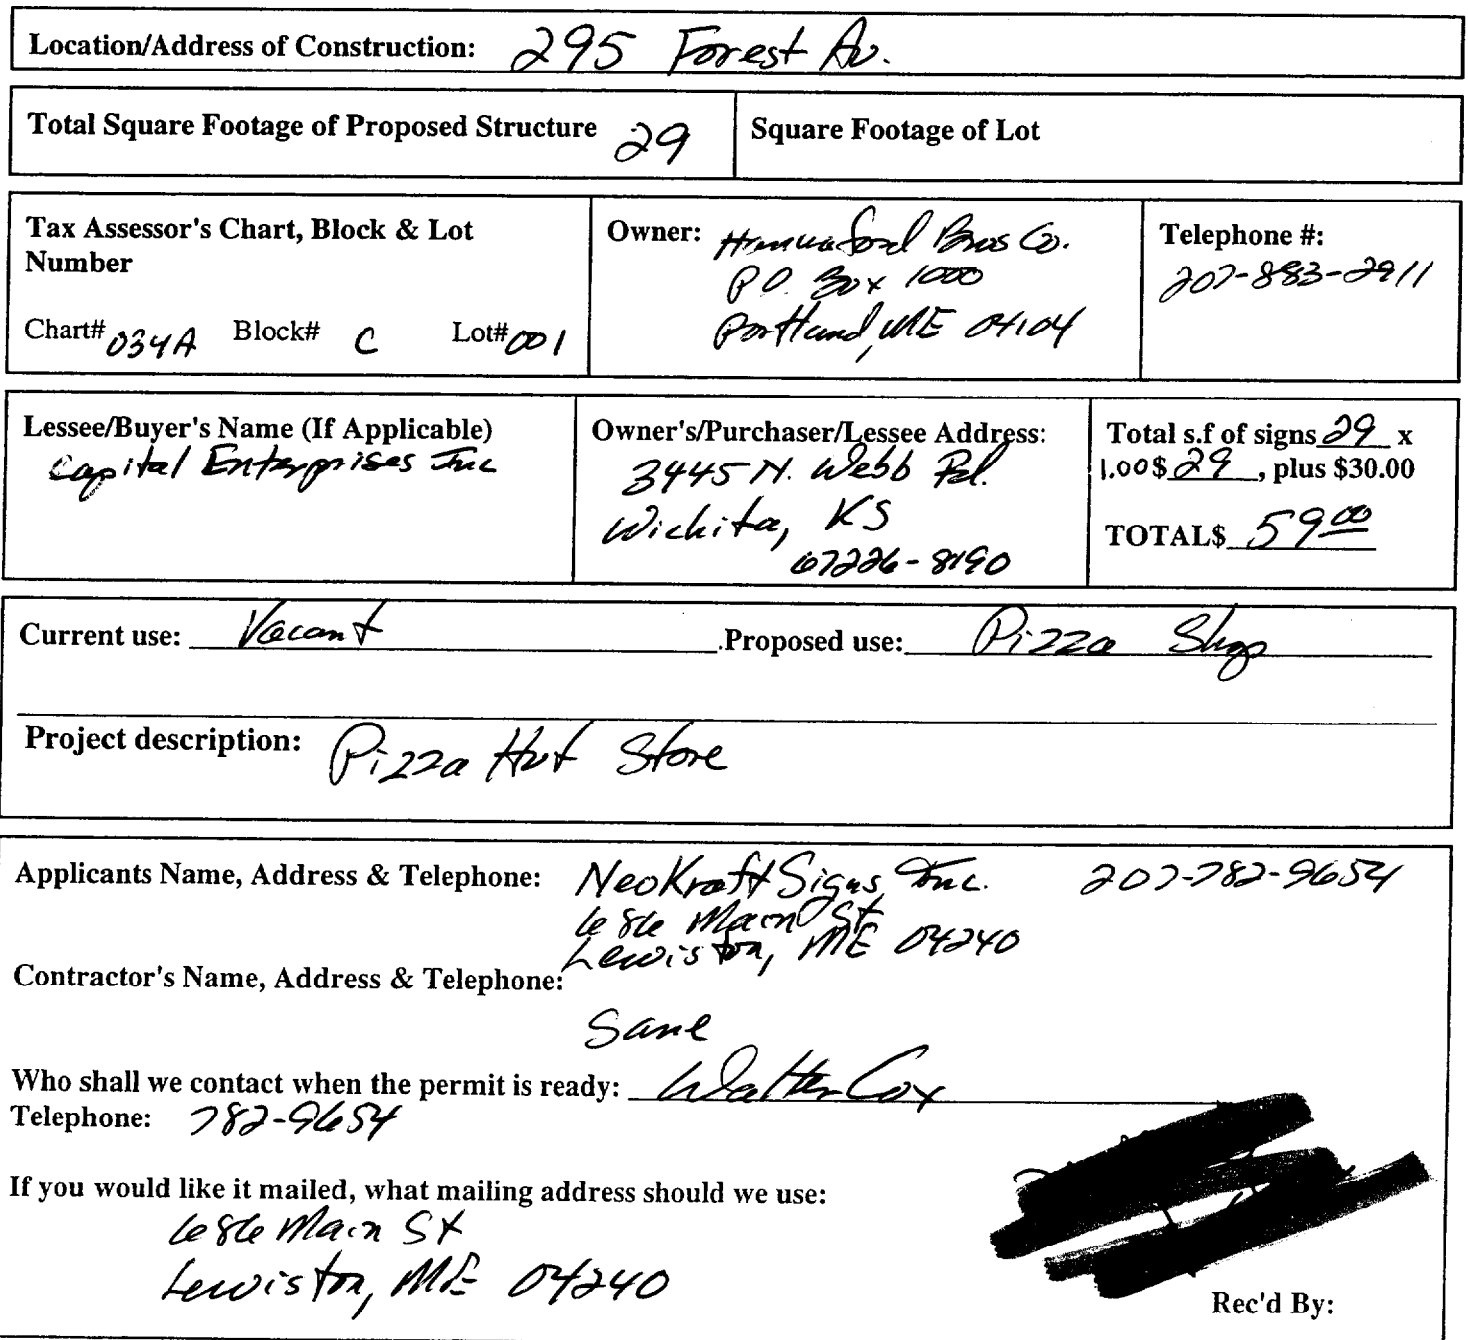 Location/Address of Construction: 295 Forest Av.
Total Square Footage of Proposed Structure 29
Square Footage of Lot
Tax Assessor's Chart, Block & Lot
Number
Chart# 034A Block# C Lot# 001
Owner: Hannaford Bros Co.
P.O. Box 1000
Portland, ME 04104
Telephone #:
207-883-2911
Lessee/Buyer's Name (If Applicable)
Capital Enterprises Inc
Owner's/Purchaser/Lessee Address:
3445 N. Webb Rd.
Wichita, KS
67226-8190
Total s.f of signs 29 x
1.00 $ 29, plus $30.00
TOTAL$ 59.00
Current use: Vacant Proposed use: Pizza Shop
Project description: Pizza Hut Store
Applicants Name, Address & Telephone: NeoKraft Signs, Inc. 207-782-9654
686 Main St
Lewiston, ME 04240
Contractor's Name, Address & Telephone:
Same
Who shall we contact when the permit is ready: Walter Cox
Telephone: 782-9654
If you would like it mailed, what mailing address should we use:
686 Main St
Lewiston, ME 04240
Rec'd By: